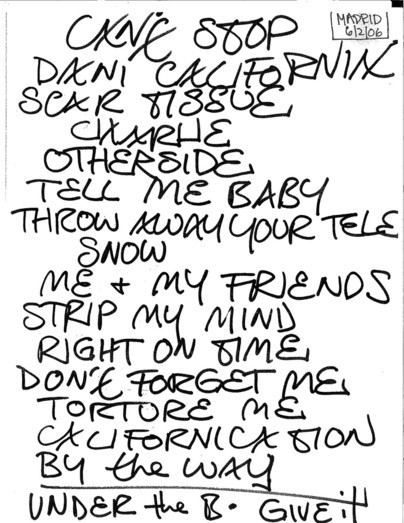 MADRID
6/2/06
CAN'T STOP
DANI CALIFORNIA
SCAR TISSUE
CHARLIE
OTHERSIDE
TELL ME BABY
THROW AWAY YOUR TELE
SNOW
ME + MY FRIENDS
STRIP MY MIND
RIGHT ON TIME
DON'T FORGET ME
TORTURE ME
CALIFORNICATION
BY the WAY
UNDER the B. GIVE it